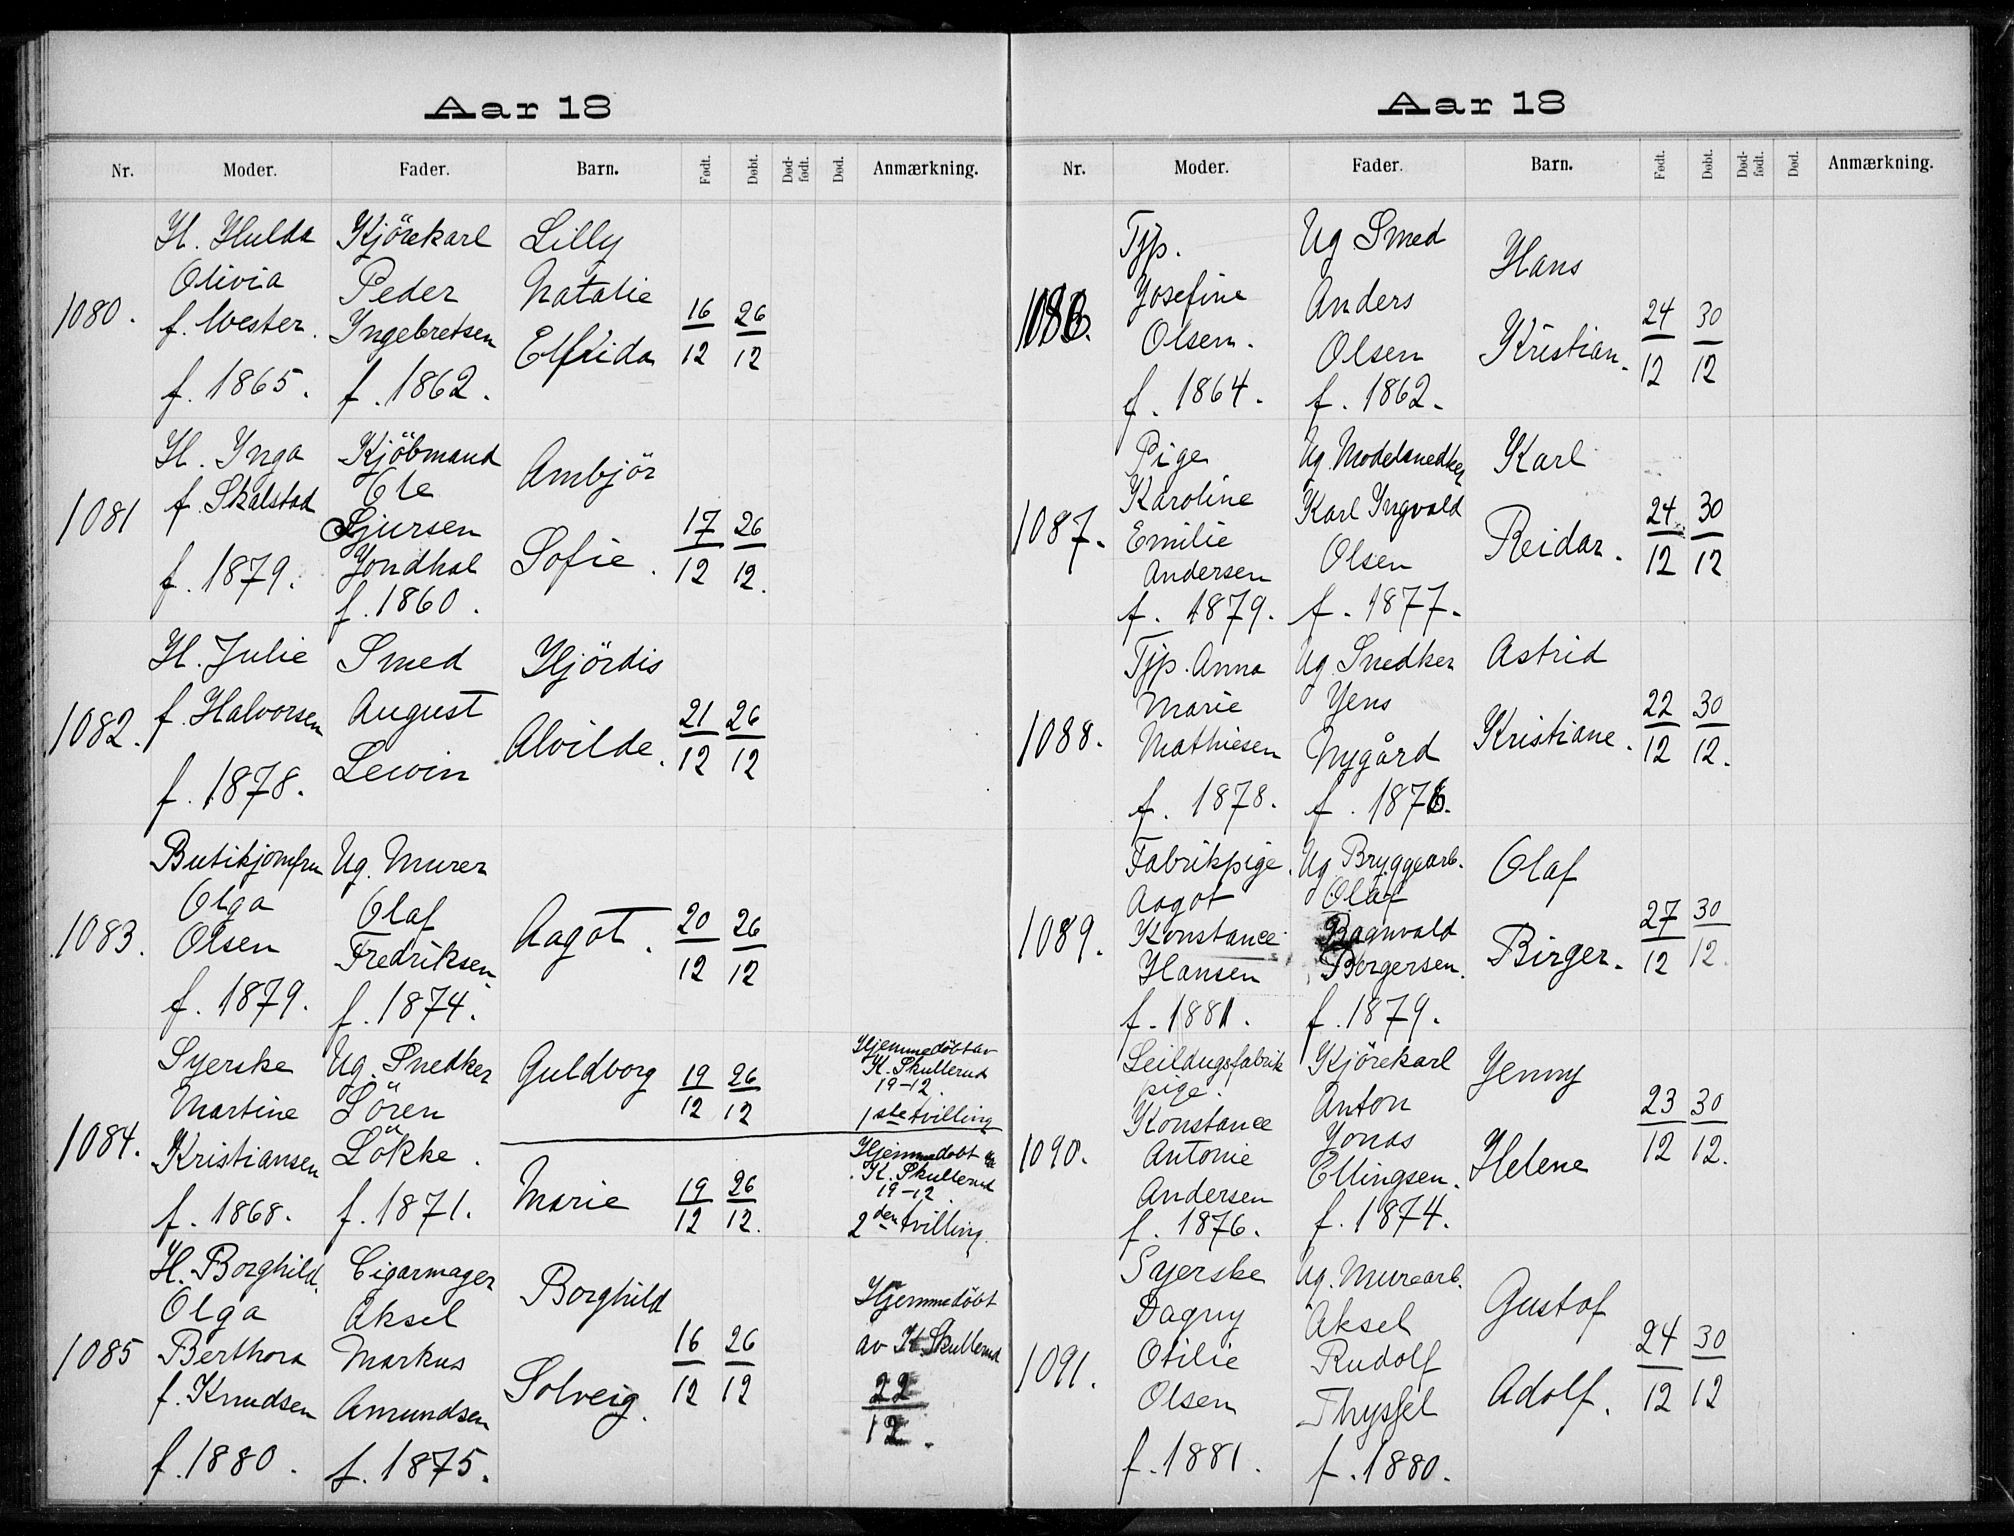 Aar 18
Nr. Moder. Fader. Barn. Født. Døbt. Død-født. Død. Anmærkning.
1080.
H. Hulda
Olivia
f. Wester.
f. 1865.
Kjörekarl
Peder
Ingebretsen
f. 1862.
Lilly
Natalie
Elfrida
16/12 26/12
1081
H. Inga
f. Skalstad
f. 1879.
Kjöbmand
Ole
Sjursen
Jondhal
f. 1860.
Ambjör
Sofie.
17/12 26/12.
1082.
H. Julie
f. Halvorsen
f. 1878.
Smed
August
Lewin
Hjördis
Alvilde.
21/12 26/12
1083.
Butikjomfru
Olga
Olsen
f. 1879.
Ug. Murer
Olaf
Fredriksen.
f. 1874.
Aagot.
20/12 26/12
1084.
Syerske
Martine
Kristiansen
f. 1868.
Ug. Snedker
Sören
Lökke.
f. 1871.
Guldborg
19/12 26/12
Hjemmedöbt av
K. Skullerud
19-12.
1ste tvilling
Marie
19/12 26/12.
Hjemmedöbt
K. Skullerud
19-12
2den tvilling.
1085
H. Borghild.
Olga
Berthora
f. Knudsen
f. 1880.
Cigarmager
Aksel
Markus
Amundsen
f. 1875.
Borghild
Solveig.
16/12 26/12
Hjemmedöbt
av K. Skullerud
22/12.
Aar 18
Nr. Moder. Fader. Barn. Født. Døbt. Død-født. Død. Anmærkning.
1086.
Tjp.
Josefine
Olsen.
f. 1864.
Ug Smed
Anders
Olsen
f. 1862.
Hans
Kristian.
24/12 30/12
1087.
Pige
Karoline
Emilie
Andersen
f. 1879.
Ug. Modelsnedker
Karl Ingvald
Olsen
f. 1877.
Karl
Reidar.
24/12 30/12
1088.
Tjp. Anna
Marie
Mathiesen
f. 1878.
Ug. Snedker
Jens
Nygård
f. 1876.
Astrid
Kristiane.
22/12 30/12.
1089.
Fabrikpige.
Aagot
Konstance
Hansen
f. 1881.
Ug Bryggearb.
Olaf
Ragnvald
Borgersen.
f. 1879.
Olaf
Birger.
27/12 30/12.
1090.
Seildugsfabrik
pige.
Konstance
Antonie
Andersen
f. 1876.
Kjörekarl
Anton
Jonas
Ellingsen.
f. 1874.
Jenny
Helene
23/12 30/12.
1091.
Syerske
Dagny
Otilie
Olsen
f. 1881.
Ug. Murearb.
Aksel
Rudolf
Thyssel
f. 1880.
Gustof
Adolf.
24/12 30/12